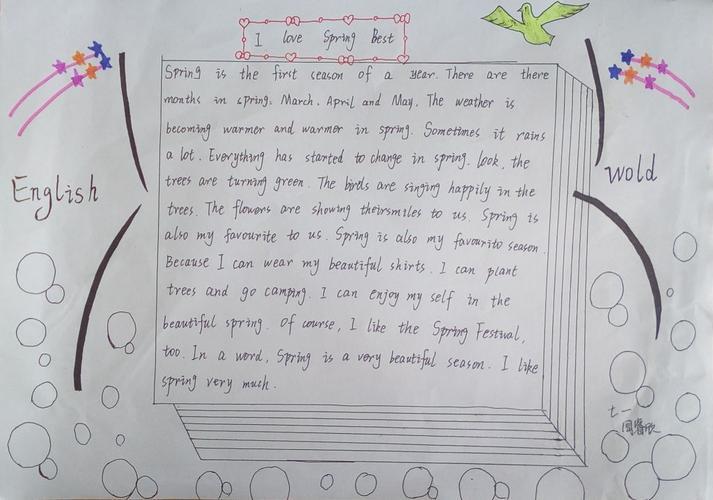 I love Spring Best
Spring is the first season of a year. There are there
months in spring. March. April and May. The weather is
becoming warmer and warmer in spring. Sometimes it rains
a lot. Everything has started to change in spring. look, the
trees are turning green. The birds are singing happily in the
trees. The flowers are showing theirsmiles to us. Spring is
also my favourite to us. Spring is also my favourito season.
Because I can wear my beautiful shirts. I can plant
trees and go camping. I can enjoy my self in the
beautiful spring. Of course, I like the Spring Festival,
too. In a word, Spring is a very beautiful season. I like
spring very much.
English
wold
七一